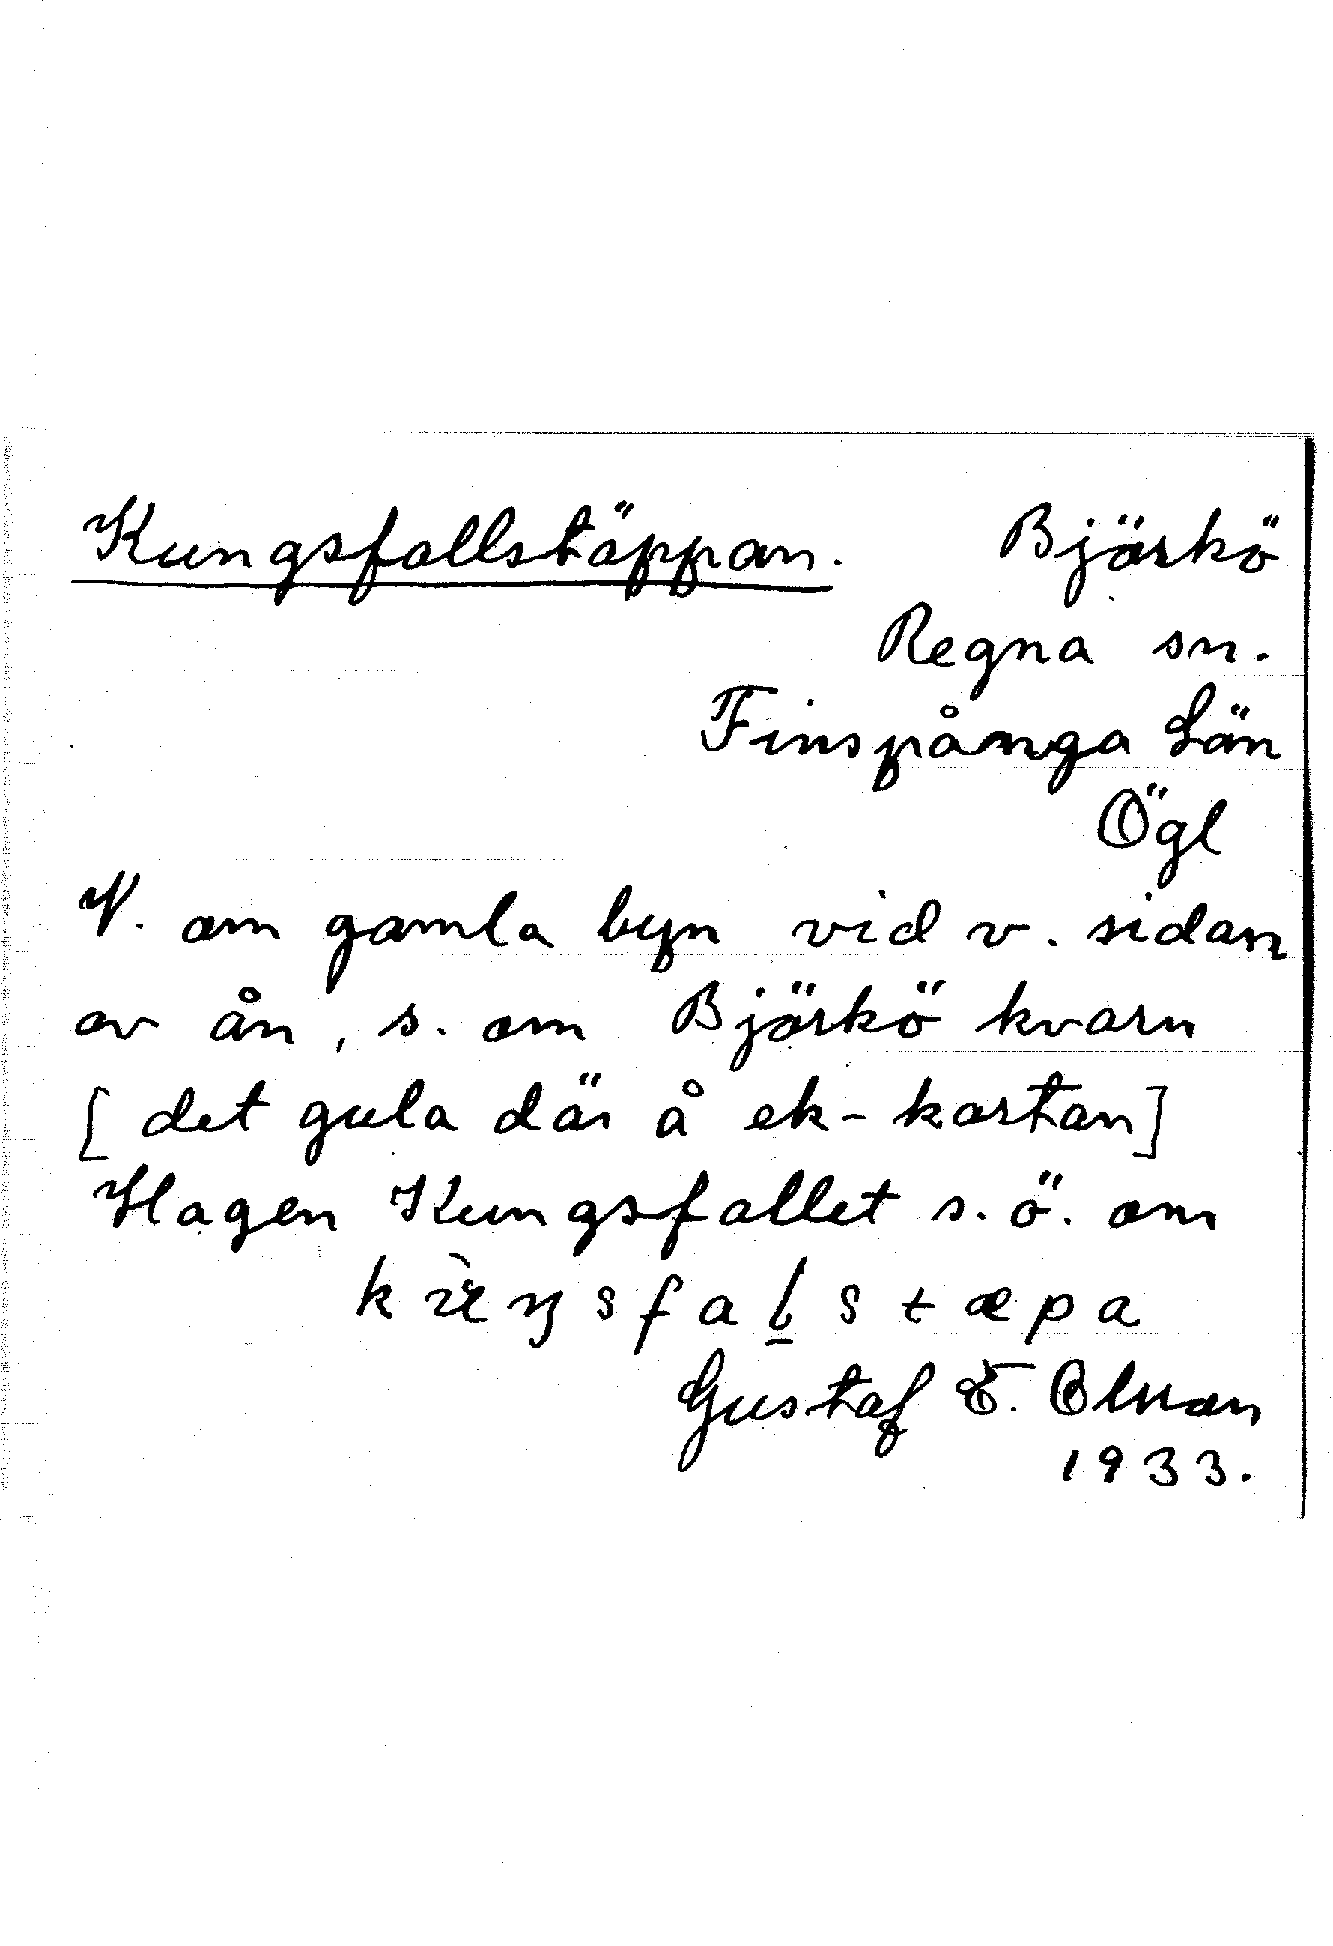 Kungsfallstäppan. Björkö
Regna sn.
Finspånga Län
Ögl
V. om gamla byn vid v. sidan
av ån, s. om Björkö kvarn
[det gula där å ek-kartan]
Hagen Kungsfallet s.ö. om
Gustaf E. Olsson
1933.